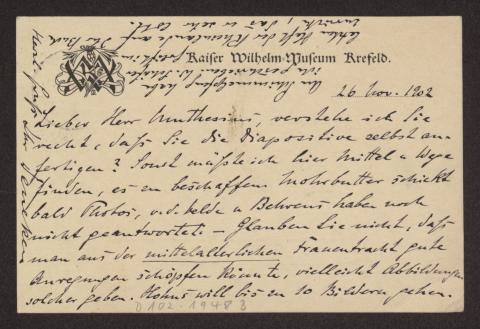 Kaiser Wilhelm-Museum Krefeld.
26 Nov. 1902
Lieber Herr Muthesius, verstehe ich Sie
recht, daß Sie die Diapositive selbst an-
fertigen? Sonst müßte ich hier Mittel u Wege
finden, es zu beschaffen. Mohrbutter schickt
bald Photos, v. d. Velde u Behrens haben noch
nicht geantwortet – Glauben Sie nicht, daß
man aus der mittelalterlichen Frauentracht gute
Anregungen schöpfen könnte, vielleicht Abbildungen
solcher geben. Mohns will bis zu 10 Bildern gehen.
D 102-1948 8
ich
letzten Heft der Rheinlande auf
zurück, das